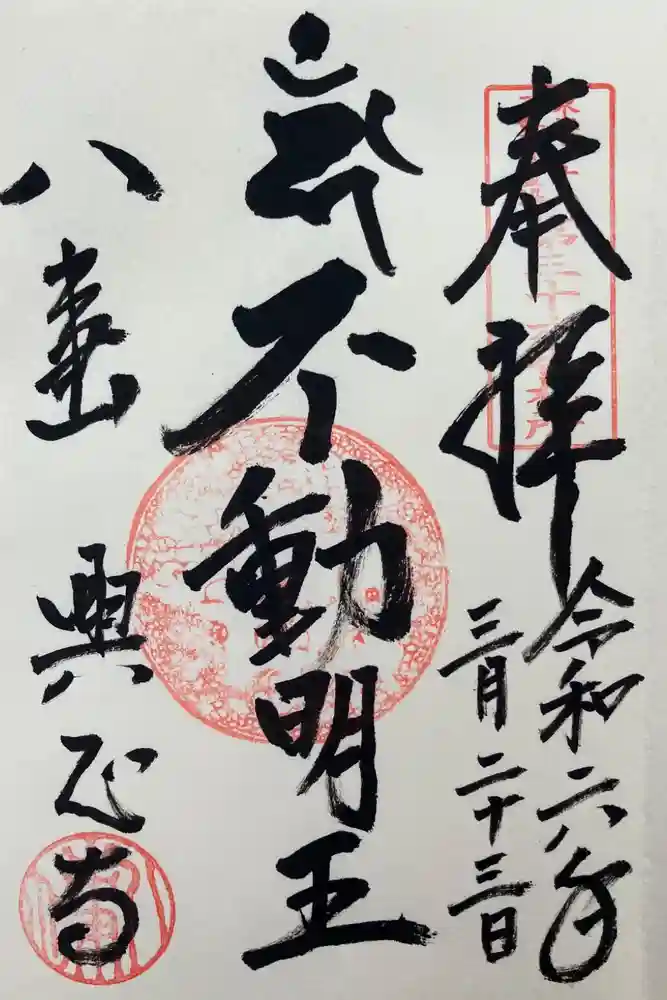 奉拝
令和六年
三月二十三日
不動明王
八事山
興正寺